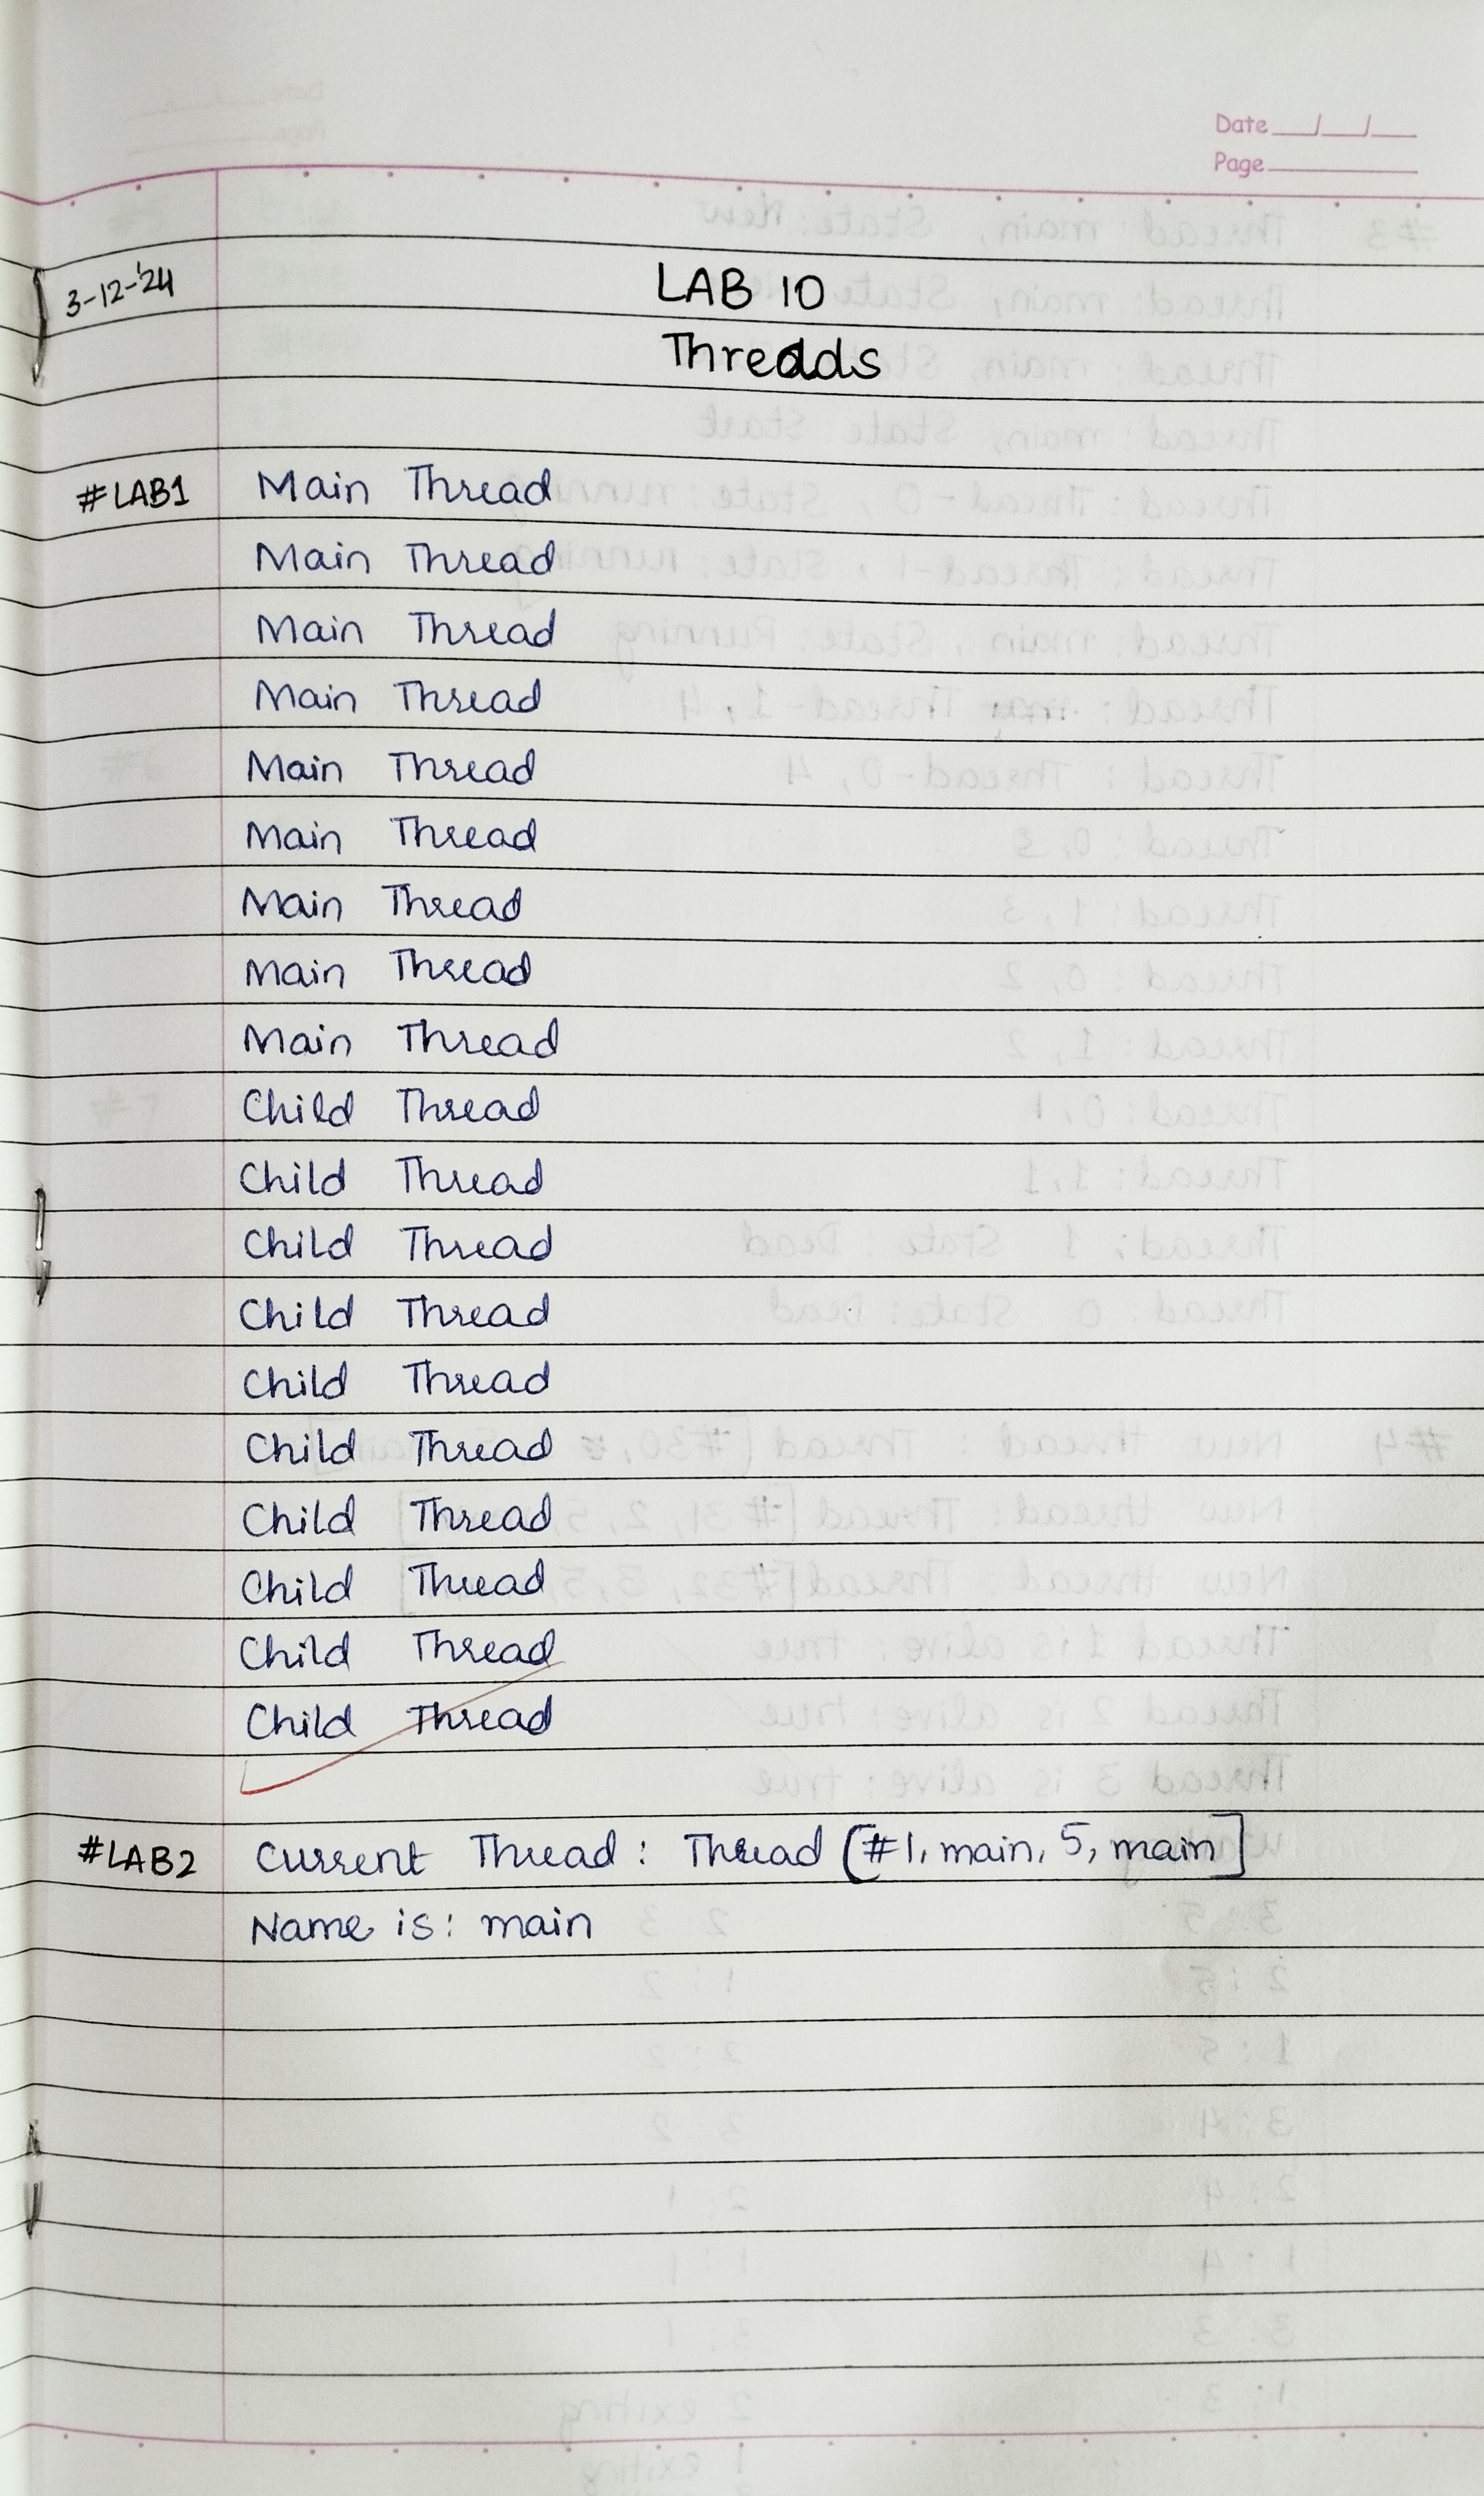 Date
Page
3-12-'24
LAB 10
Threads
#LAB1 Main Thread
Main Thread
Main Thread
Main Thread
Main Thread
Main Thread
Main Thread
Main Thread
Main Thread
Child Thread
Child Thread
Child Thread
Child Thread
Child Thread
Child Thread
Child Thread
Child Thread
Child Thread
Child Thread
#LAB2 Current Thread : Thread [#1, main, 5, main]
Name is: main